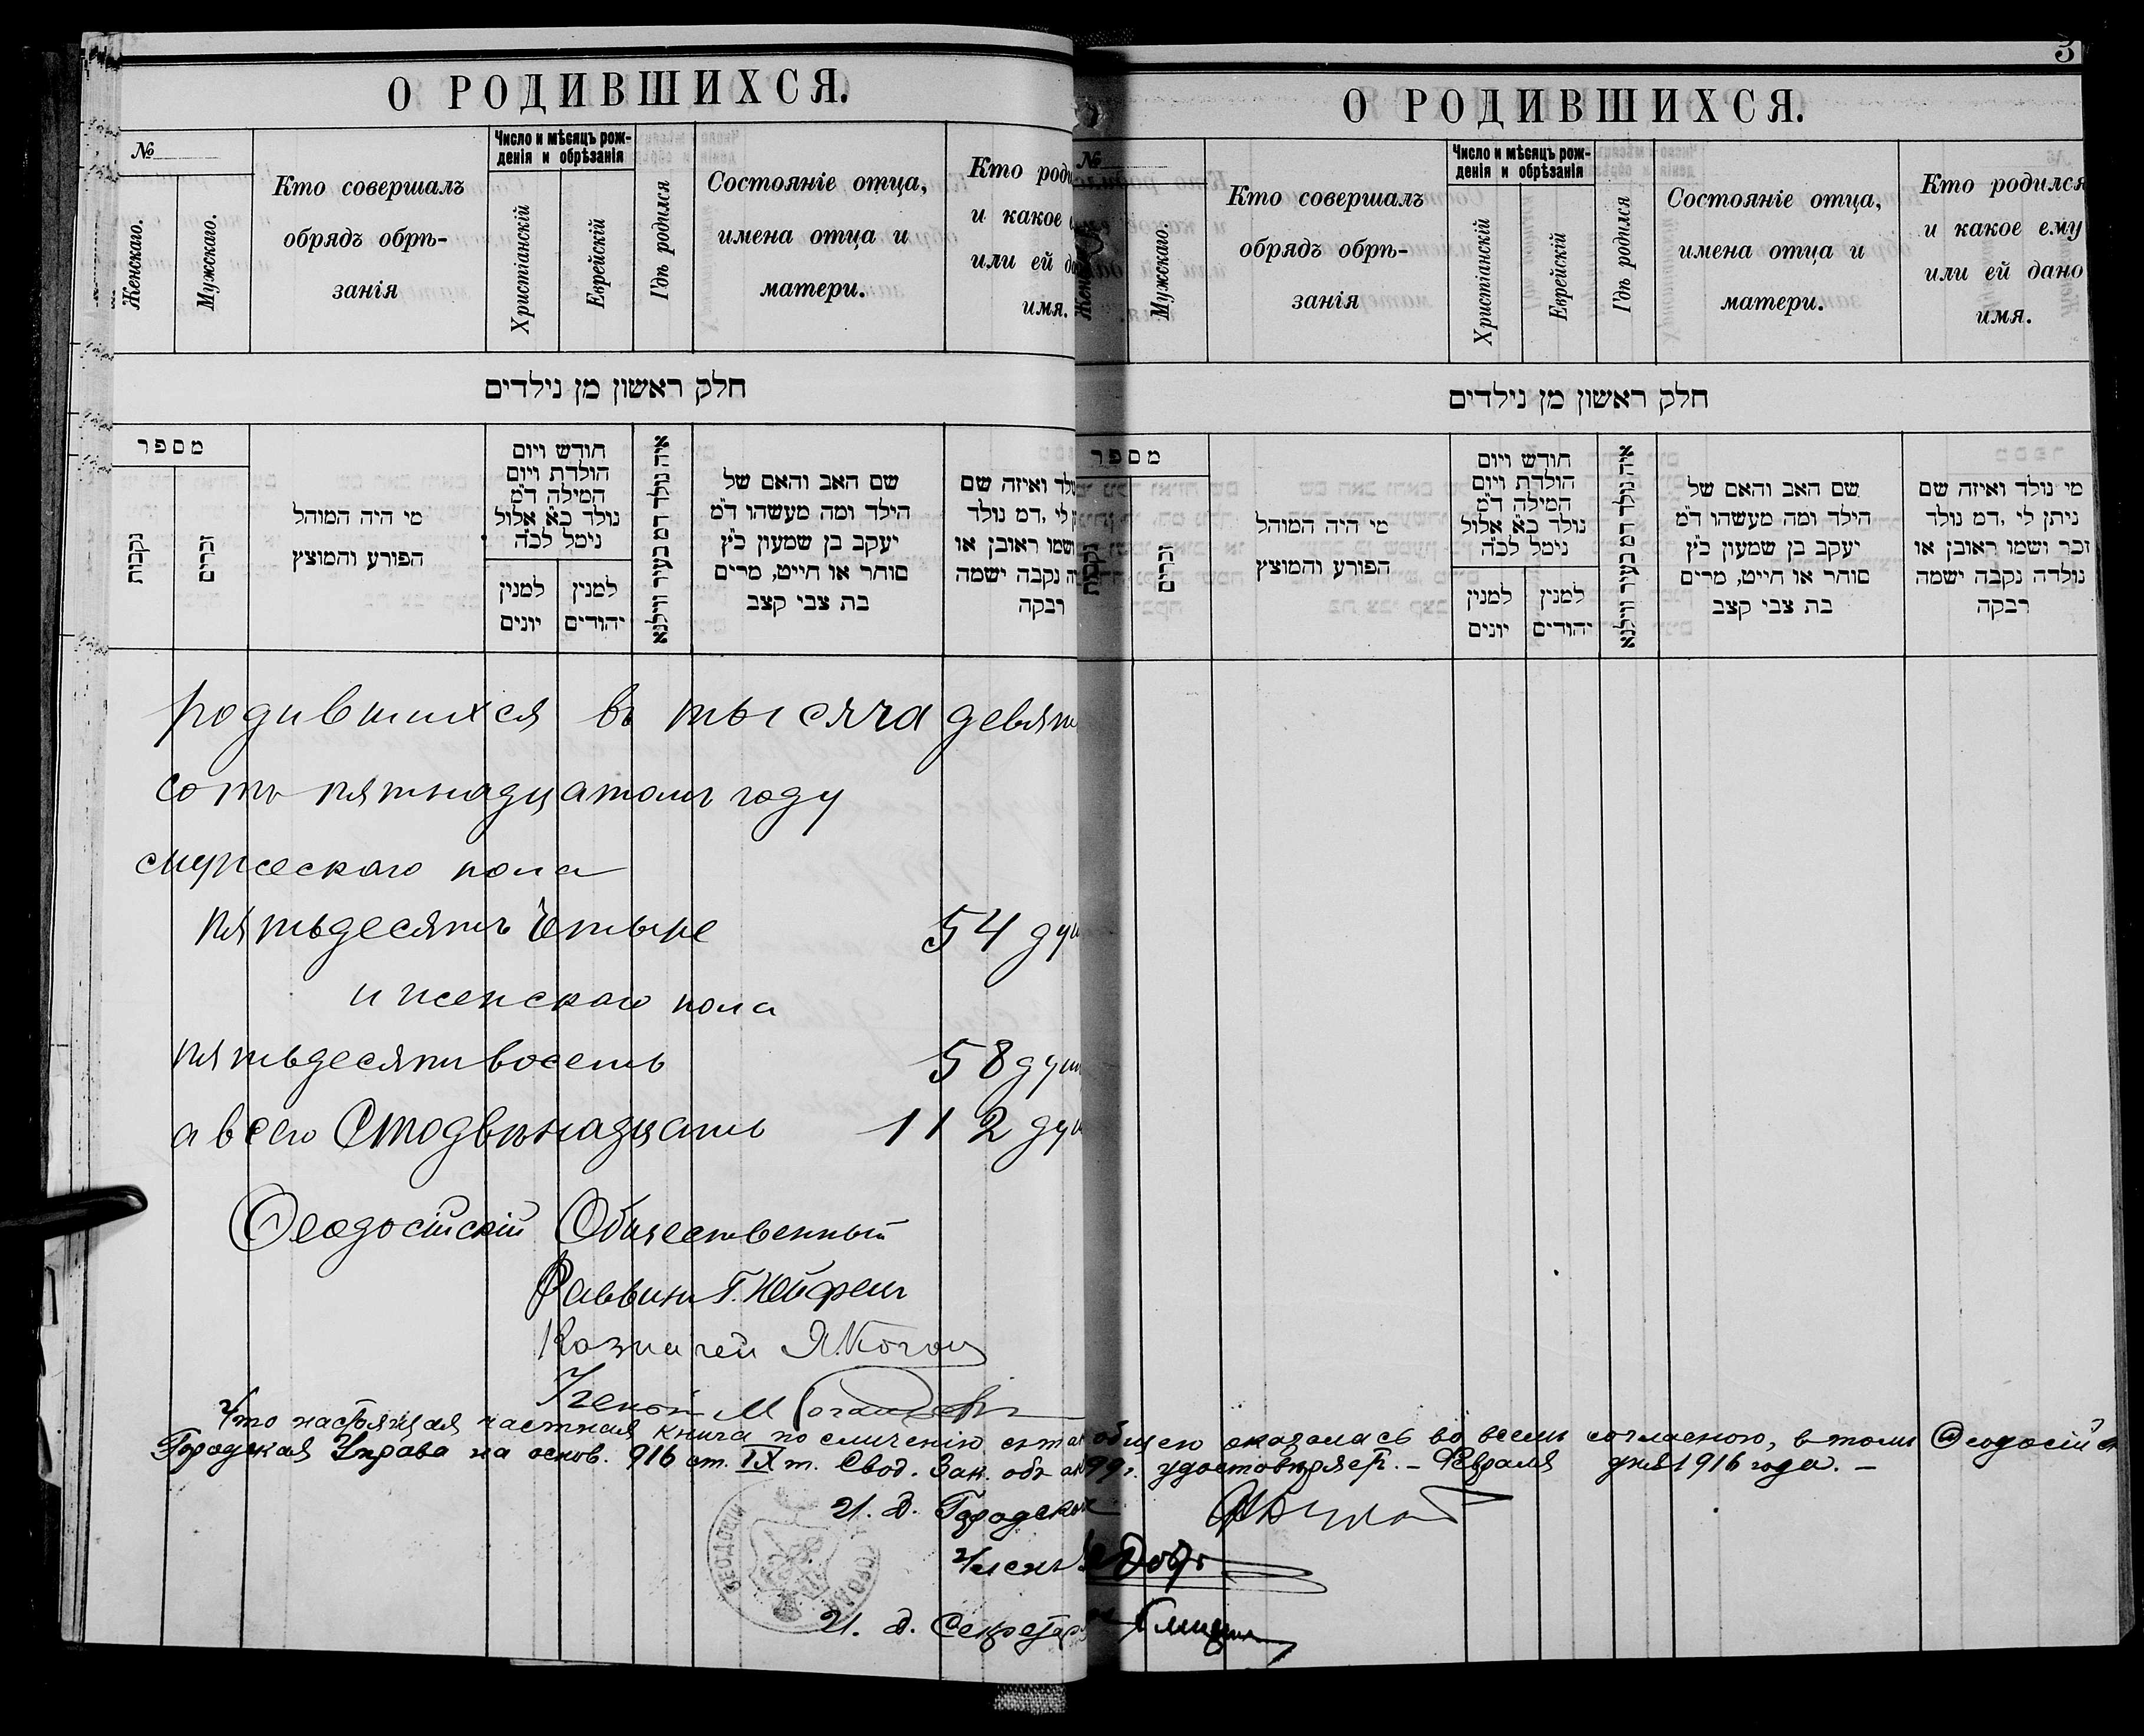 О РОДИВШИХСЯ.
№
Женскаго.
Мужскаго.
Кто совершалъ
обрядъ обрѣ-
занія
Число и мѣсяцъ рож-
денія и обрѣзанія
Христіанскій
Еврейскій
Гдѣ родился
Состояніе отца,
имена отца и
матери.
Кто роди
и какое
или ей да
имя.
חלק ראשון מן נילדים
מספר
נקבות
זכרים
מי היה המוהל
הפורע והמוצץ
חודש ויום
הולדת ויום
המילה ד״מ
נולד כ״א אלול
נימל לכ״ה
למנין
יונים
למנין
יהודים
איה נולד דמ בעיר ווילנא
שם האב והאם של
הילד ומה מעשהו ד״מ
יעקב בן שמעון כ״ץ
סוחר או חייט, מרים
בת צבי קצב
ולד ואיזה שם
לי ,דמ נולד
ושמו ראובן או
ה נקבה ישמה
רבקה
родившихся въ тысяча девят
сотъ пятнадцатомъ году
мужескаго пола
пятьдесятъ четыре 54 душ
и женскаго пола
пятьдесятъ восемь 58 душ
а всего Сто двѣнадцать 112 душ
Ѳеодосійскій Общественный
Раввинъ Г.
Казначей Я Коган
Ученый М
Что настоящая частная книга по сличенію съ та общею оказалась во всемъ согласною, въ томъ Ѳеодосійск
Городская Управа на основ. 916 ст. IX т. Свод. Зак. объ ак 99 г. удостовѣряетъ. – Февраля дня 1916 года. –
И. д. Городск
Членъ
И. д. Секретар
ѲЕОДОСІЙ
О РОДИВШИХСЯ.
3
№
Женс
Мужскаго.
Кто совершалъ
обрядъ обрѣ-
занія
Число и мѣсяцъ рож-
денія и обрѣзанія
Христіанскій
Еврейскій
Гдѣ родился
Состояніе отца,
имена отца и
матери.
Кто родился
и какое ему
или ей дано
имя.
חלק ראשון מן נילדים
מספר
נקבות
זכרים
מי היה המוהל
הפורע והמוצץ
חודש ויום
הולדת ויום
המילה ד״מ
נולד כ״א אלול
נימל לכ״ה
למנין
יונים
למנין
יהודים
איה נולד דמ בעיר ווילנא
שם האב והאם של
הילד ומה מעשהו ד״מ
יעקב בן שמעון כ״ץ
סוחר או חייט, מרים
בת צבי קצב
מי נולד ואיזה שם
ניתן לי ,דמ נולד
זכר ושמו ראובן או
נולדה נקבה ישמה
רבקה